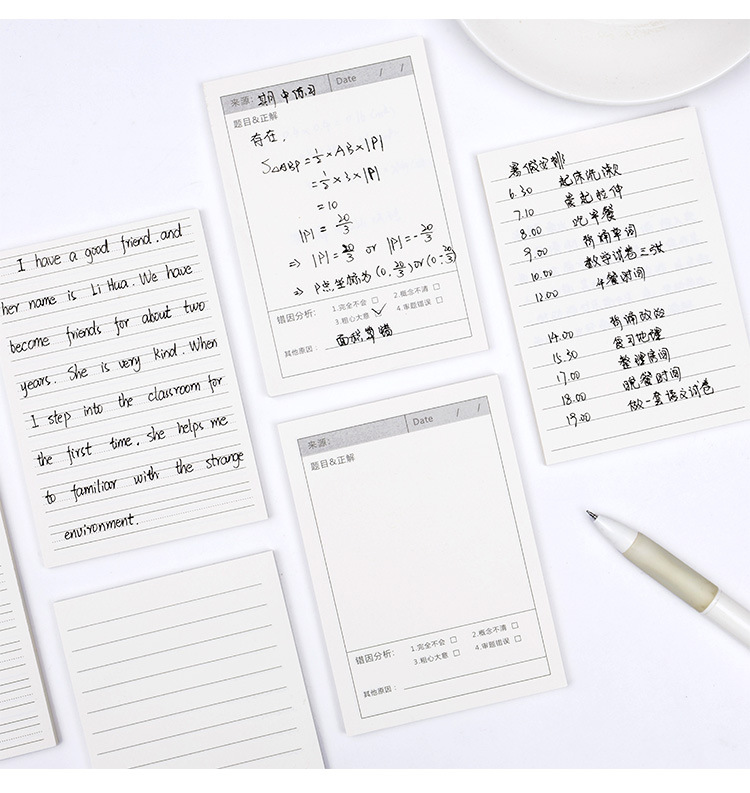 I have a good friend, and
her name is Li Hua. We have
become friends for about two
years. She is very kind. When
I step into the classroom for
the first time, she helps me
to familiar with the strange
environment.
来源: 期中练习 Date / /
题目&正解
存在,
S△ABP = ½ × AB × |P|
= ½ × 3 × |P|
= 10
|P| = 20/3
⇒ |P| = 20/3 or |P| = -20/3
⇒ P点坐标为 (0, 20/3) or (0, -20/3)
错因分析: 1.完全不会 □ 2.概念不清 □
3.粗心大意 ✓ 4.审题错误 □
其他原因: 面积算错
暑假安排
6.30 起床洗漱
7.10 晨起拉伸
8.00 吃早餐
9.00 背诵单词
10.00 数学试卷三张
12.00 午餐时间
14.00 背诵政治
15.30 复习地理
17.00 整理房间
18.00 晚餐时间
19.00 做一套语文试卷
来源: Date / /
题目&正解
错因分析: 1.完全不会 □ 2.概念不清 □
3.粗心大意 □ 4.审题错误 □
其他原因: